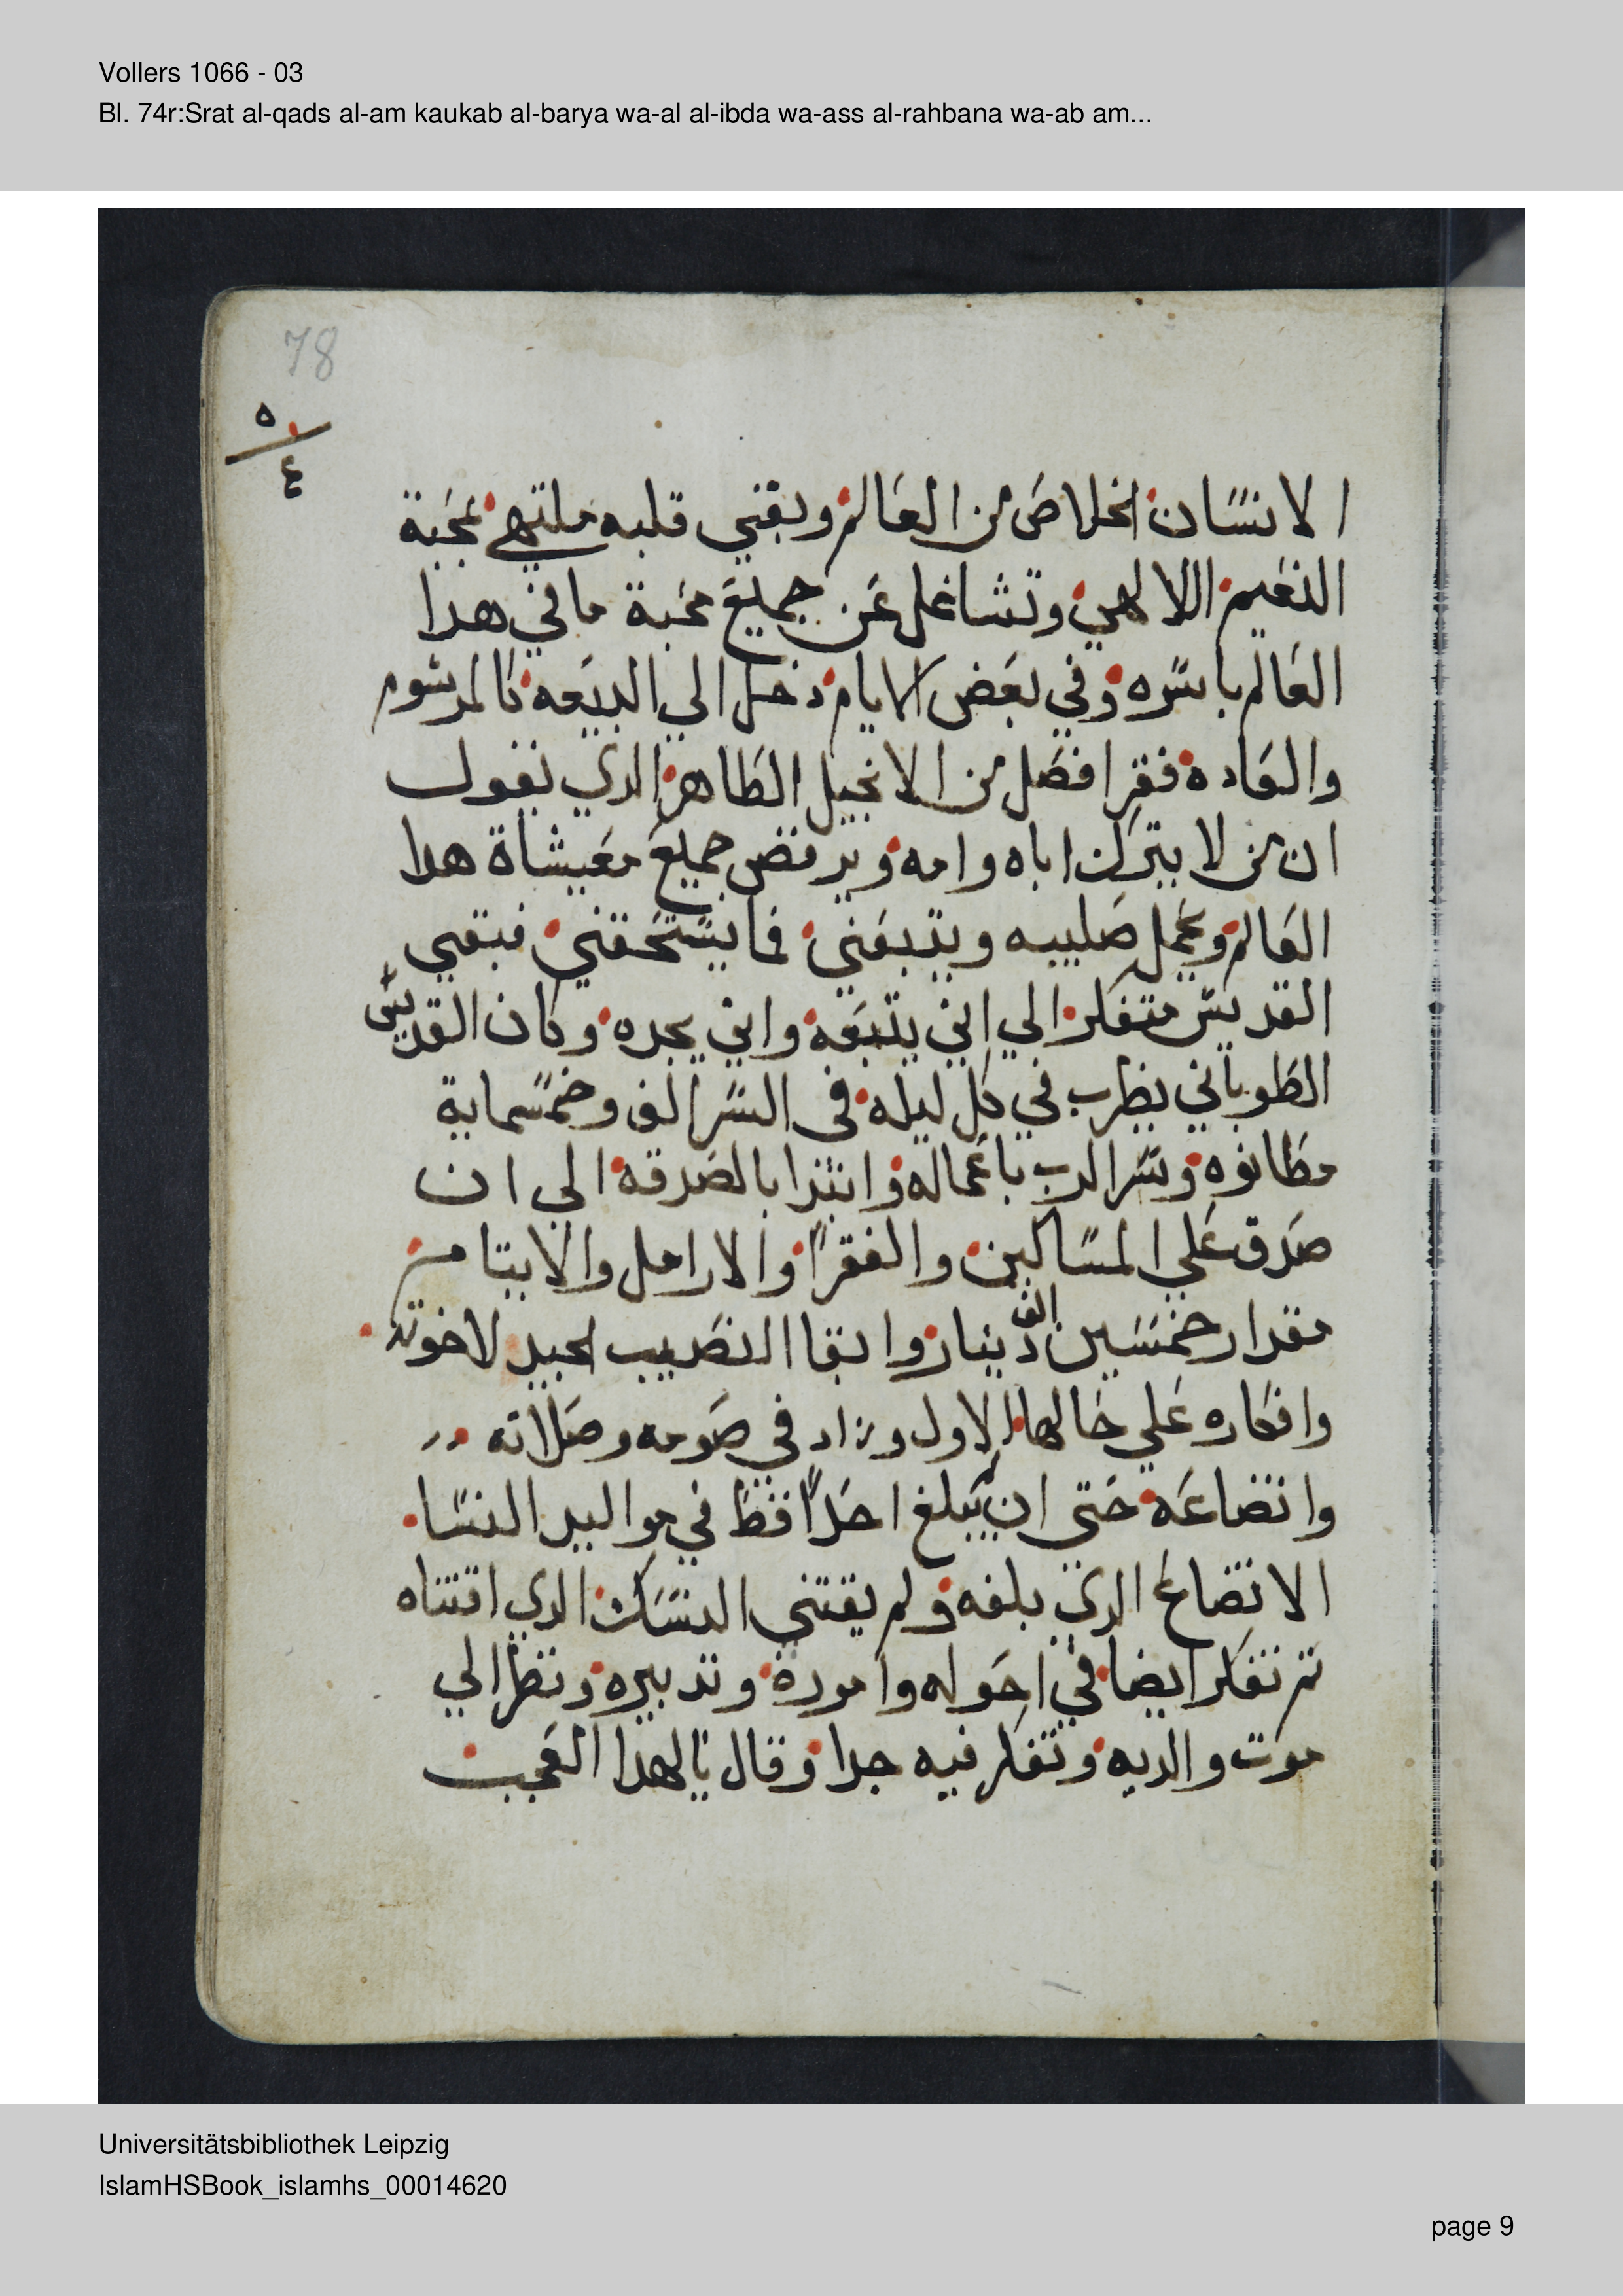 Vollers 1066 - 03
Bl. 74r:Srat al-qads al-am kaukab al-barya wa-al al-ibda wa-ass al-rahbana wa-ab am...
78
٥
٤
الانسان الخلاص من العالم وبقي قلبه ملتهي بمحبة
النعيم اللالاهي وتشاغل عن جميع محبة ما في هدا
العالم باسره وفي بعض الايام دخل الي البيعه كالمرسوم
والعاده فقرا فصل من الانجيل الطاهر الدي يقول
ان من لا يترك اباه وامه ويرفض جميع معيشاة هدا
العالم ويحمل صليبه ويتبعني فما يستحقني فبقي
القديس متفكر الي اين يتبعه واين يجده وكان القديس
الطوباني يضرب في كل ليله في السر الف وخمسماية
مطانوه وسر الرب باعماله وابتدا بالصدقه الي ان
صدق علي المساكين والفقرا والارامل والايتام
مقدار خمسين الف دينار وابقا النصيب الجيد لاخوته
وافكاره علي حالها الاول وزاد في صومه وصلاته
واتضاعه حتي ان لم يبلغ احداً قط في مواليد النسا
الاتضاع الدي بلغه ولم يقتني النسك الدي اقتناه
تم تفكر ايضا في احوله واموره وتدبيره ونظر الي
موت والديه وتفكر فيه جدا وقال يا لهدا العجب
Universitätsbibliothek Leipzig
IslamHSBook_islamhs_00014620
page 9